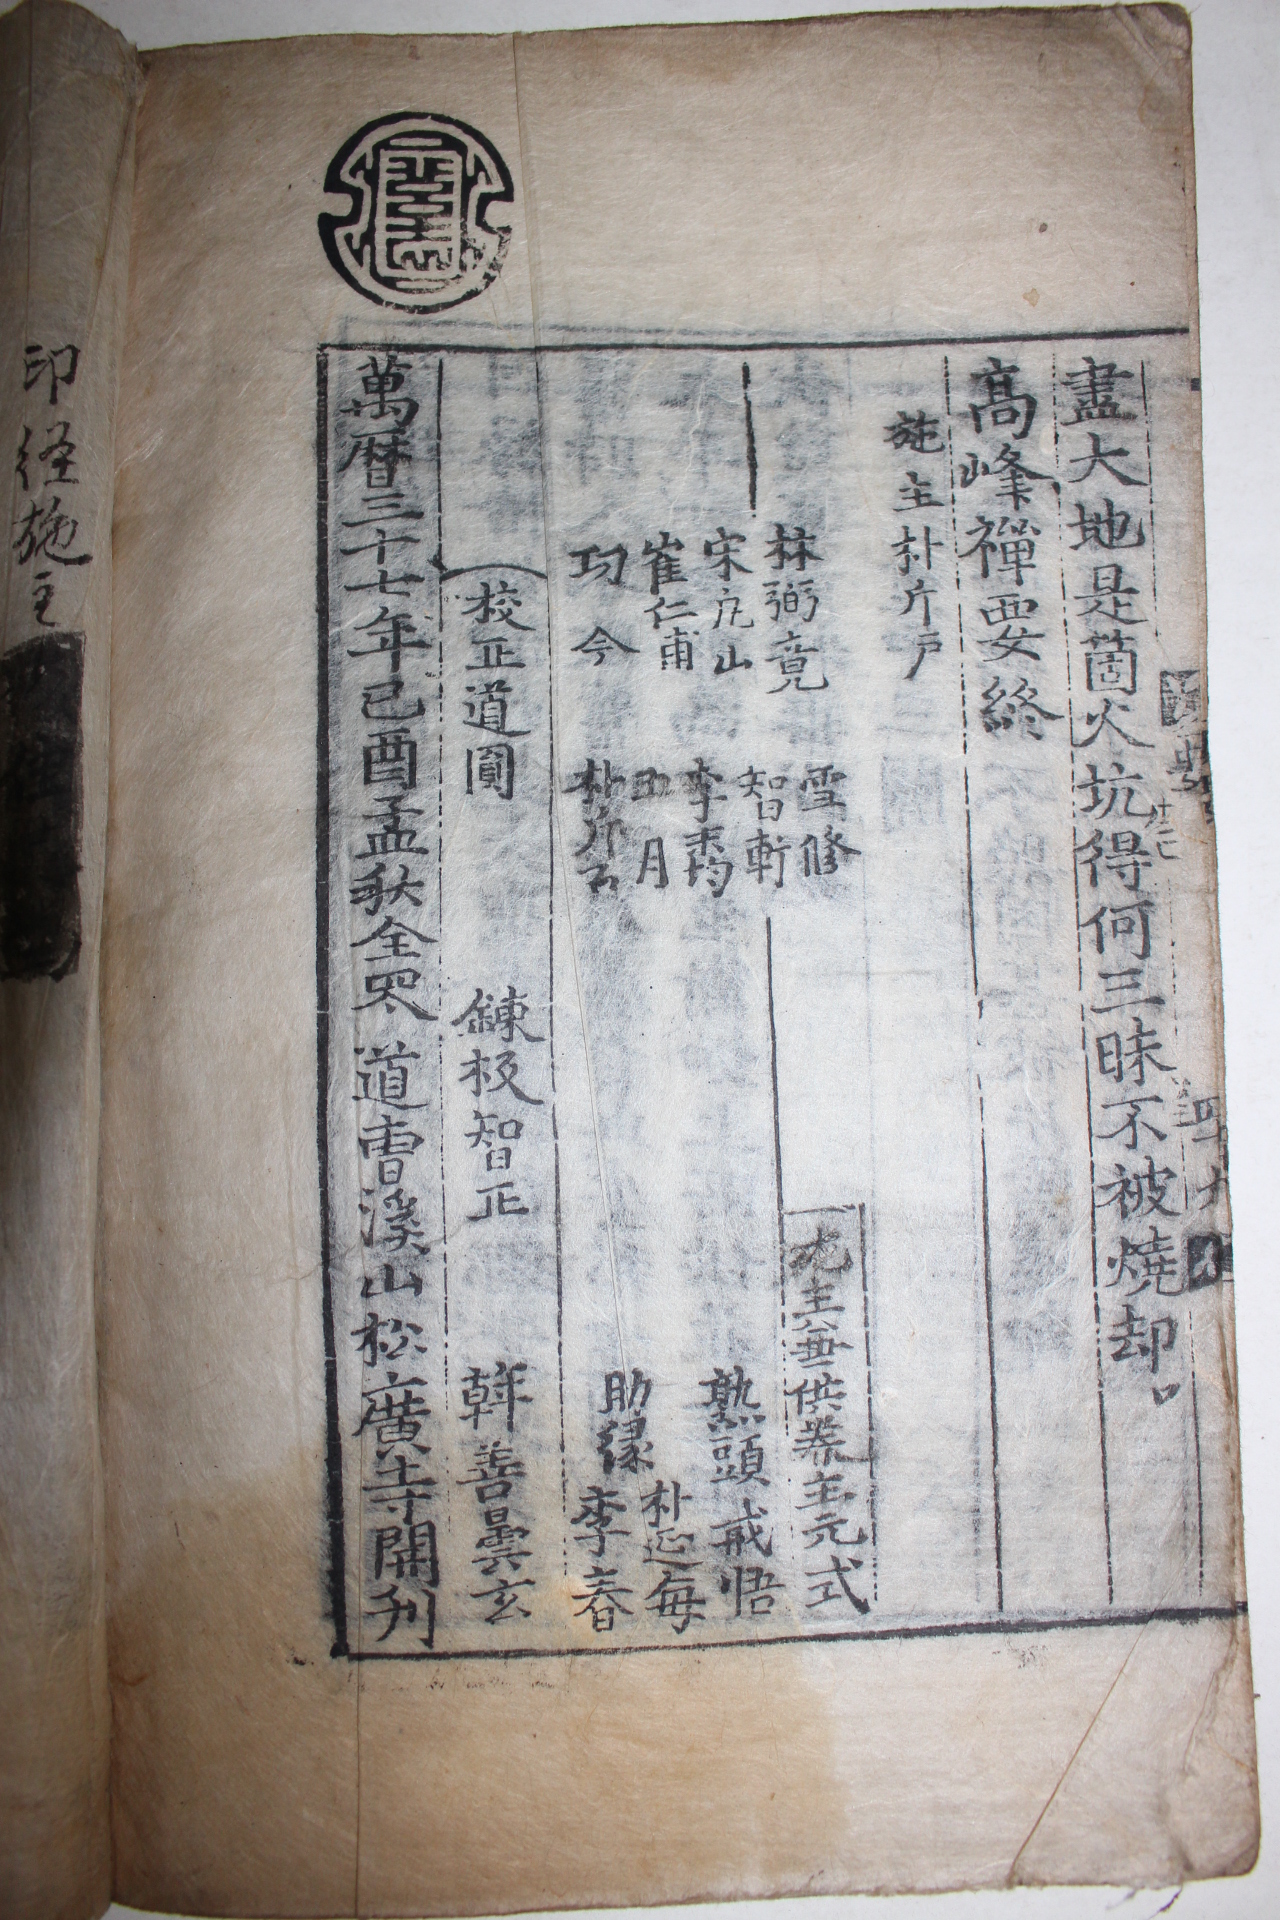 盡大地是箇火坑得何三昧不被燒却
高峰禪要終
施主朴斤戶
林弼竟 雪修
宋 山 智軒
崔仁甫 李
今 月
朴
化主兼供養主元式
熟頭戒悟
助緣 朴延每
李春
校正道圓 鍊板智正 幹善曇玄
萬曆三十七年己酉孟秋全罗道曺溪山松廣寺開刋
印经施主